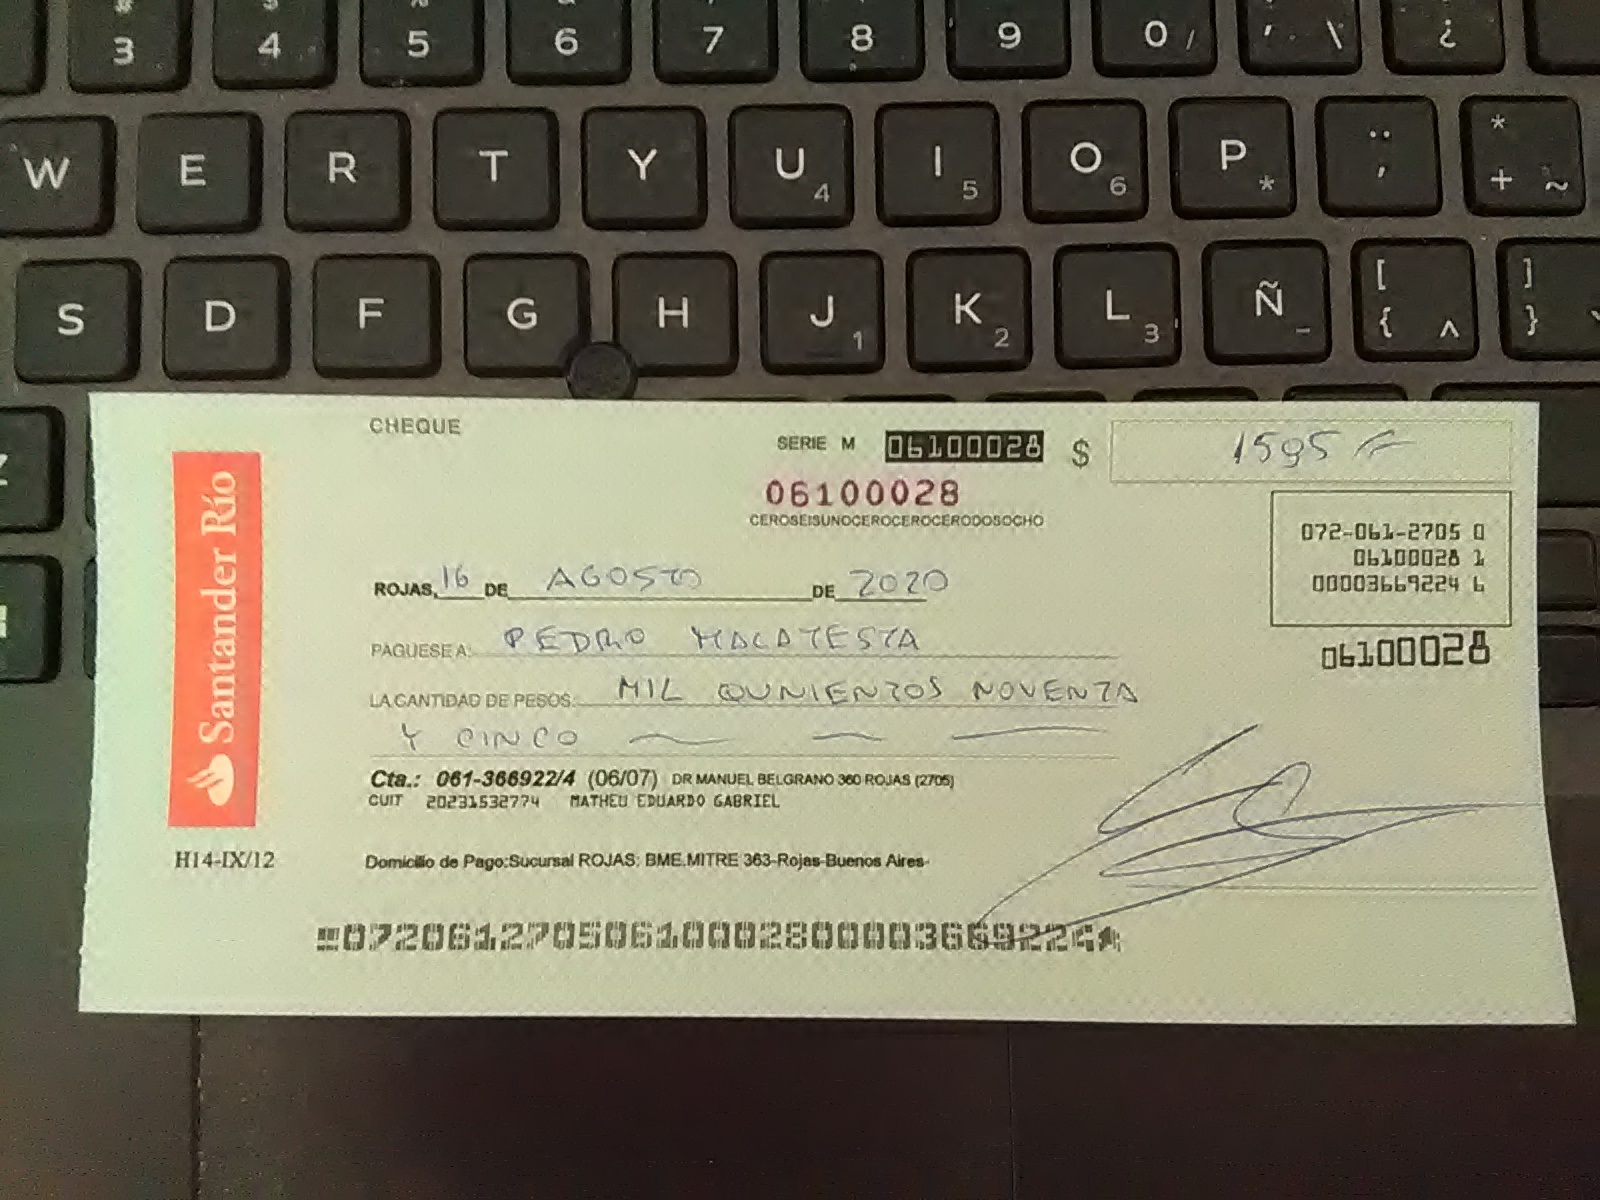 3 4 5 6 7 8 9 0 / ' \ ¿
W E R T Y U 4 I 5 O 6 P * ¨ ´ * + ~
S D F G H J 1 K 2 L 3 Ñ _ [ { ^ ] }
Z
CHEQUE
SERIE M 06100028 $ 1595
06100028
CEROSEISUNOCEROCEROCERODOSOCHO
072-061-2705 0
06100028 1
00003669224 6
06100028
Santander Río
ROJAS, 16 DE AGOSTO DE 2020
PAGUESE A: PEDRO MALATESTA
LA CANTIDAD DE PESOS: MIL QUNIENTOS NOVENTA
Y CINCO
Cta.: 061-366922/4 (06/07) DR MANUEL BELGRANO 360 ROJAS (2705)
CUIT 20231532774 MATHEU EDUARDO GABRIEL
H14-IX/12
Domicilio de Pago:Sucursal ROJAS: BME.MITRE 363-Rojas-Buenos Aires-
07206127050610002800003669224